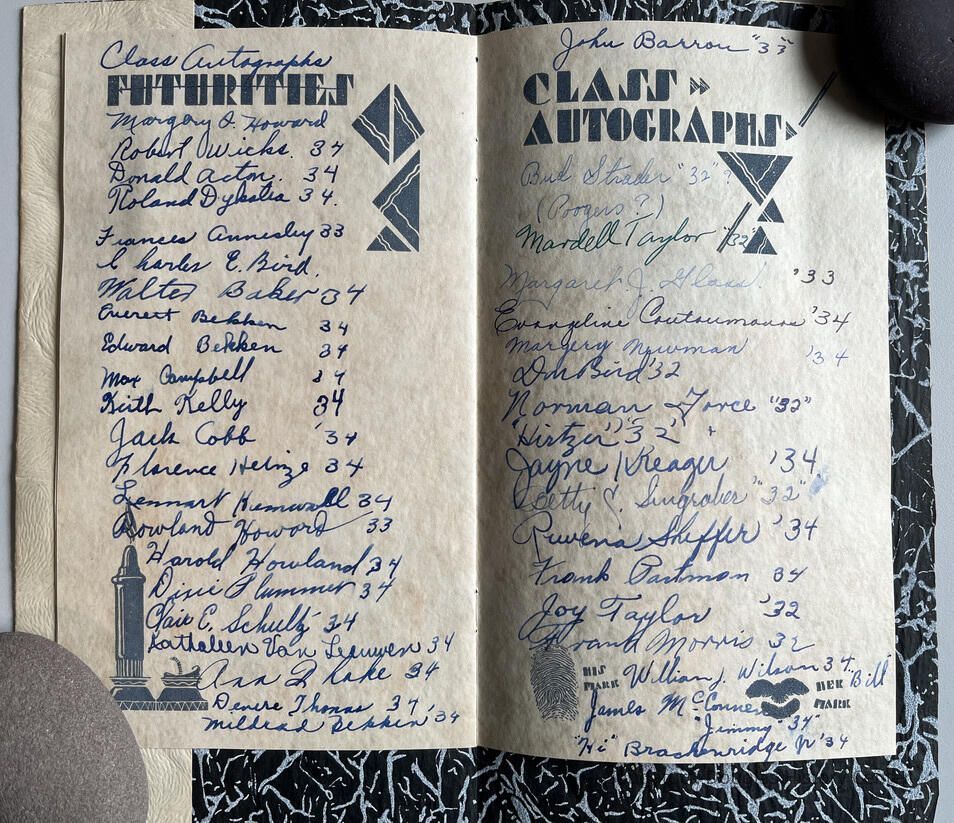 Class Autographs
FUTURITIES
Margery O. Howard
Robert Wicks. 34
Donald Acton. 34
Roland Dykstra 34.
Frances Annesley 33
Charles E. Bird.
Walter Baker 34
Everett Bekken 34
Edward Bekken 34
Max Campbell 34
Keith Kelly 34
Jack Cobb '34
Florence Heinze 34
Lennart Hemwall 34
Rowland Howard 33
Harold Howland 34
Dixie Plummer 34
Clair E. Schultz 34
Kathaleen Van Leeuwen 34
Ann Lake 34
Denere Thomas 34
Mildred Bekken '34
John Barron "33"
CLASS »
AUTOGRAPHS»
Bud Strader "32"?
(Poogers?)
Mardell Taylor "32"
Margaret J. Glass! '33
Evangeline Coutoumanos '34
Margery Newman '34
Don Bird '32
Norman Force "32"
"Hirtzer" '32'
Jayne Kreager '34
Betty J. Sungraber "32"
Ruwena Sheffer '34
Frank Partmon 34
Joy Taylor '32
Frank Morris 32
HIS MARK
William J. Wilson 34. Bill
HER MARK
James McConnell
"Jimmy "34"
"Hi" Brackenridge Jr '34